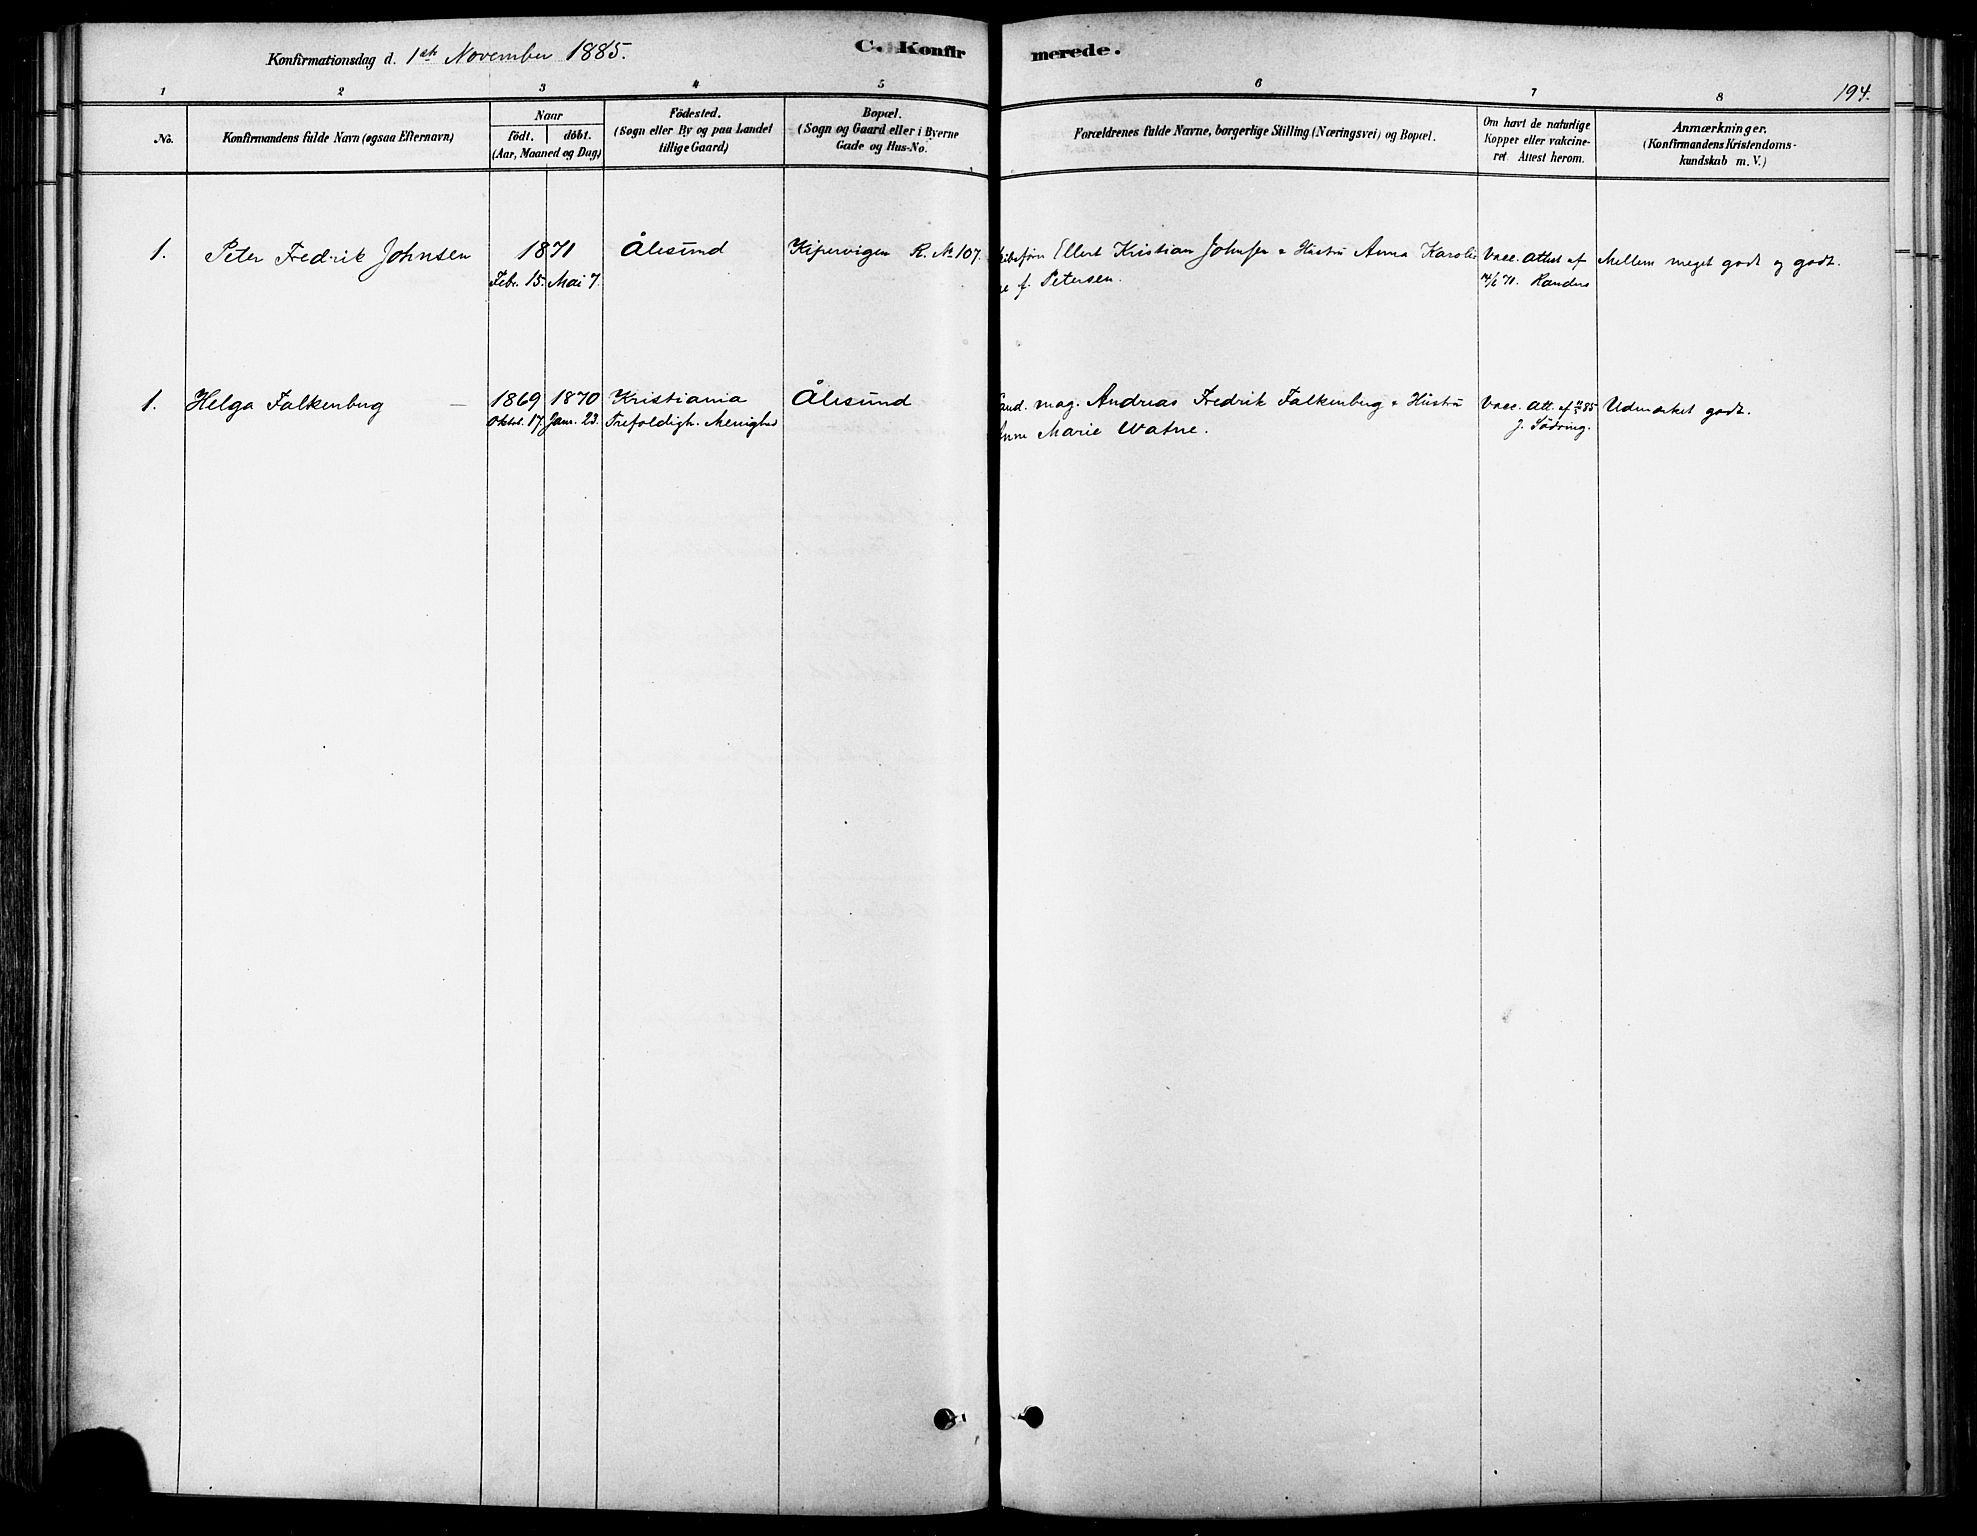 Konfirmationsdag d. 1ste November 1885.
C. Konfirmerede.
194.
1 2 3 4 5 6 7 8
No.
Konfirmandens fulde Navn (ogsaa Efternavn)
Naar
födt. döbt.
(Aar, Maaned og Dag)
Födested.
(Sogn eller By og paa Landet
tillige Gaard)
Bopæl.
(Sogn og Gaard eller i Byerne
Gade og Hus-No.
Forældrenes fulde Navne, borgerlige Stilling (Næringsvei) og Bopæl.
Om havt de naturlige
Kopper eller vakcine-
ret. Attest herom.
Anmærkninger.
(Konfirmandens Kristendoms-
kundskab m. V.)
1. Peter Fredrik Johnsen 1871 Ålesund Kipervigen R. No 107. Ellert Kristian Johnsen & Hustru Anna Karoli Vacc. attest af Mellem meget godt og godt.
Febr. 15. Mai 7. ne f. Petersen. Randers
1. Helga Falkenberg 1869 1870 Kristiania Ålesund Cand. mag. Andreas Fredrik Falkenberg & Hustru Vacc. Att. af 85 Udmærket godt.
Oktob. 17. Janr. 23. Trefoldigh. Menighed Anne Marie Watne. J. Södring.